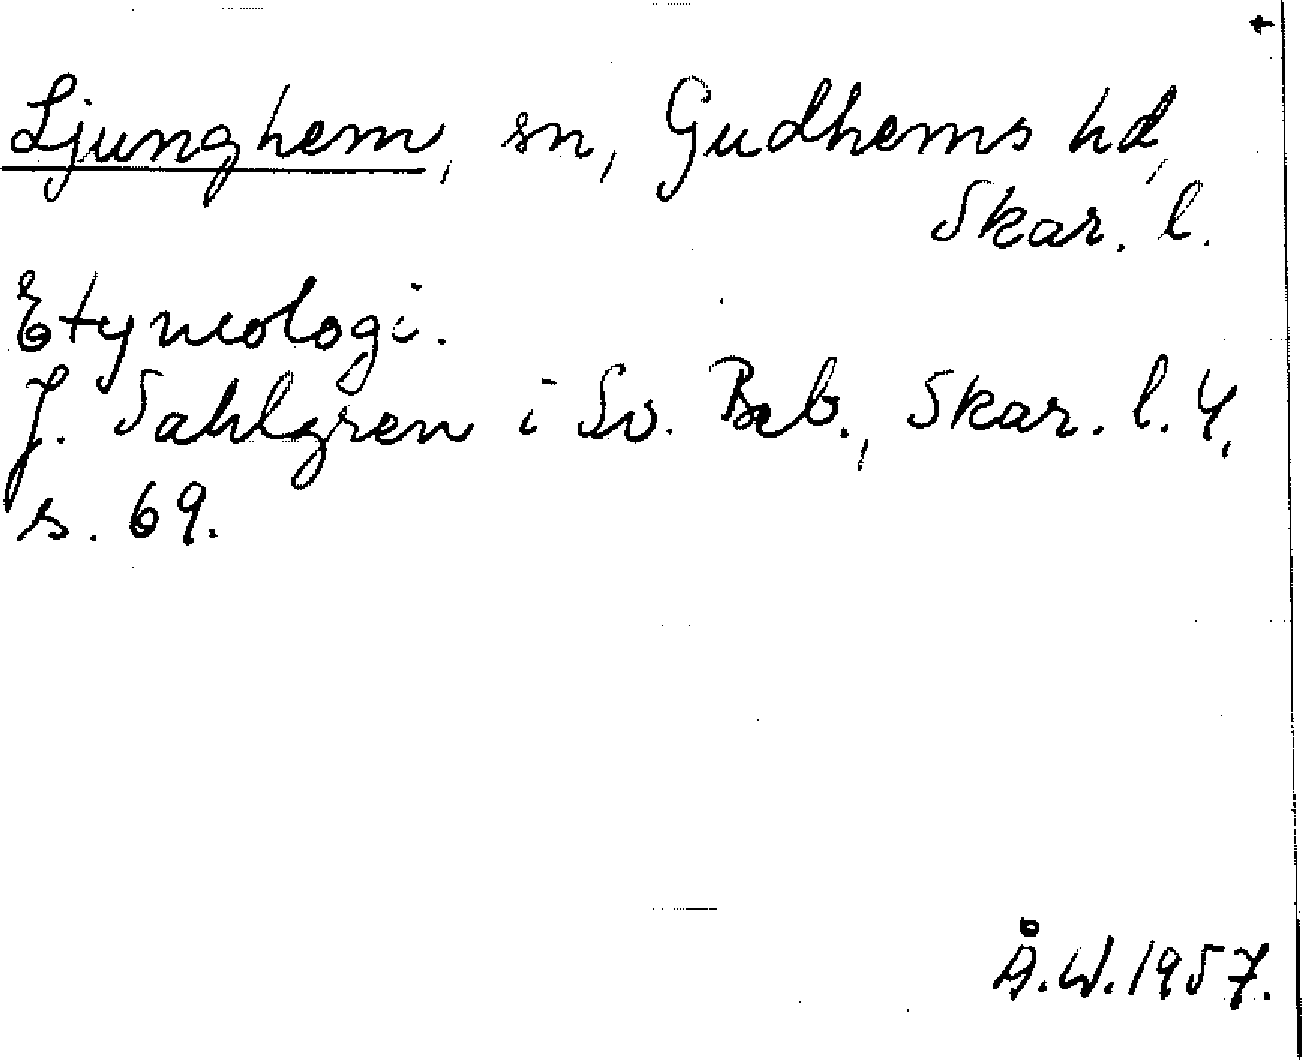 Ljunghem, sn, Gudhems hd,
Skar. l.
Etymologi.
J. Sahlgren i Sv. Beb., Skar. l. 4,
s. 69.
Å.W. 1957.